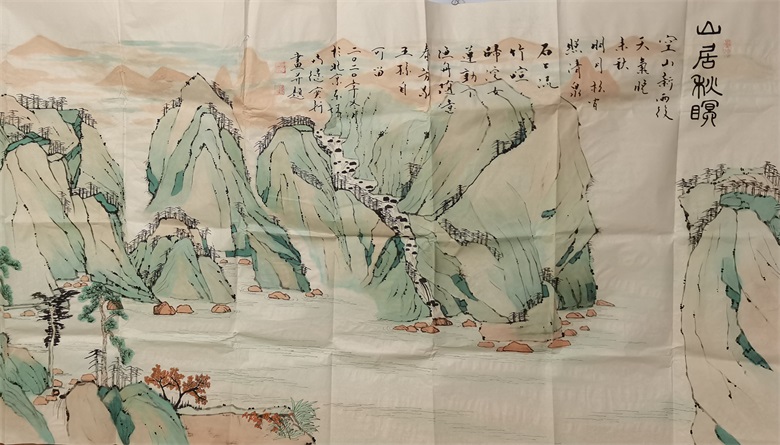 山居秋暝
空山新雨後
天氣晚
来秋
明月松間
照清泉
石上流
竹喧
歸浣女
蓮動下
漁舟隨意
春芳歇
王孫自
可留
二〇二〇年九月
於北京
畫并題